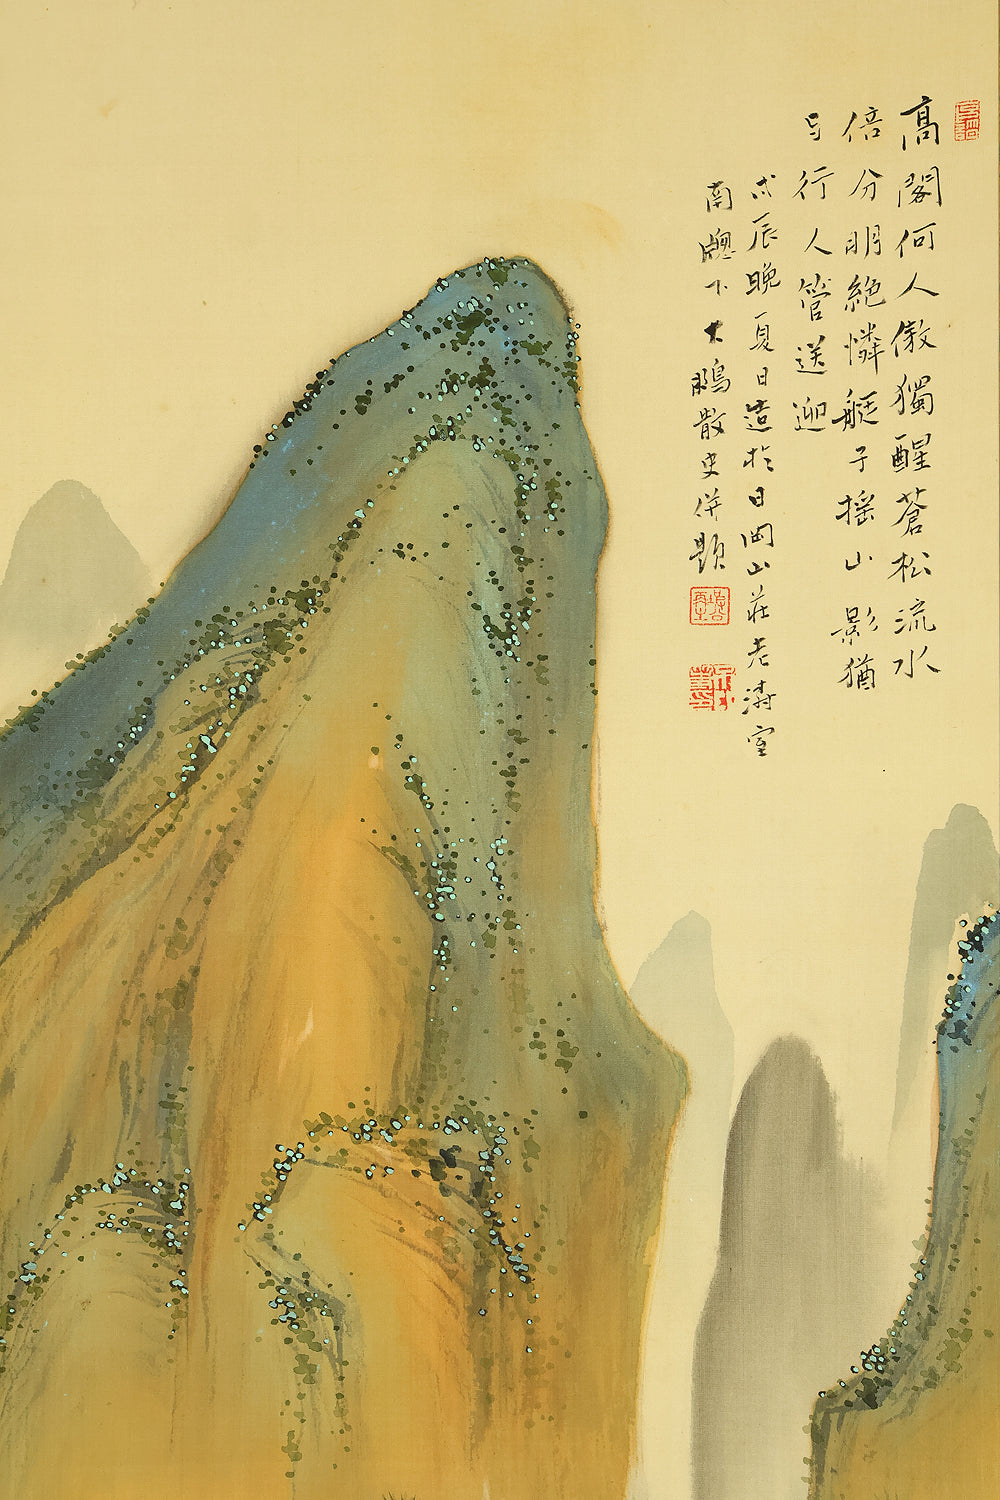 高閣何人傲獨醒蒼松流水
倍分明絶憐艇子揺山影猶
与行人管送迎
戊辰晩夏日造於日岡山荘老涛室
南牕下大鵬散史併題